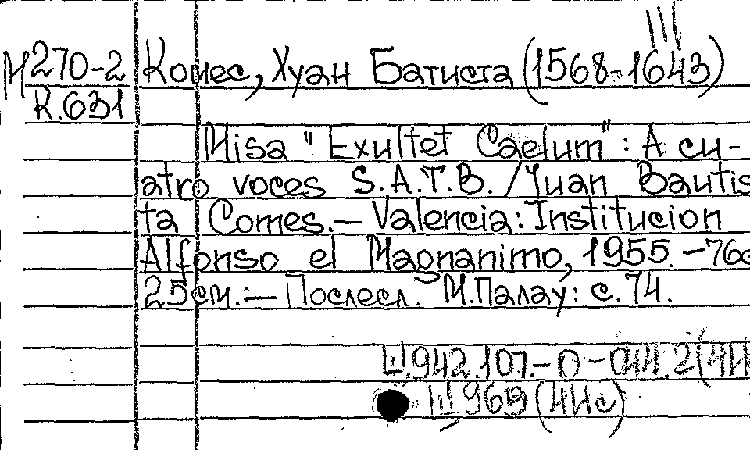 III
М 270-2 Комес, Хуан Батиста (1568-1643)
К.631
Misa "Exultet Caelum": A cu-
atro voces S.A.T.B. / Juan Bautis
ta Comes.— Valencia: Institucion
Alfonso el Magnanimo, 1955.-76с
25см.— Послесл. М.Палау: с.74.
Ш.942.107.-0-044.2(4И
Ш 969 (4Ис)